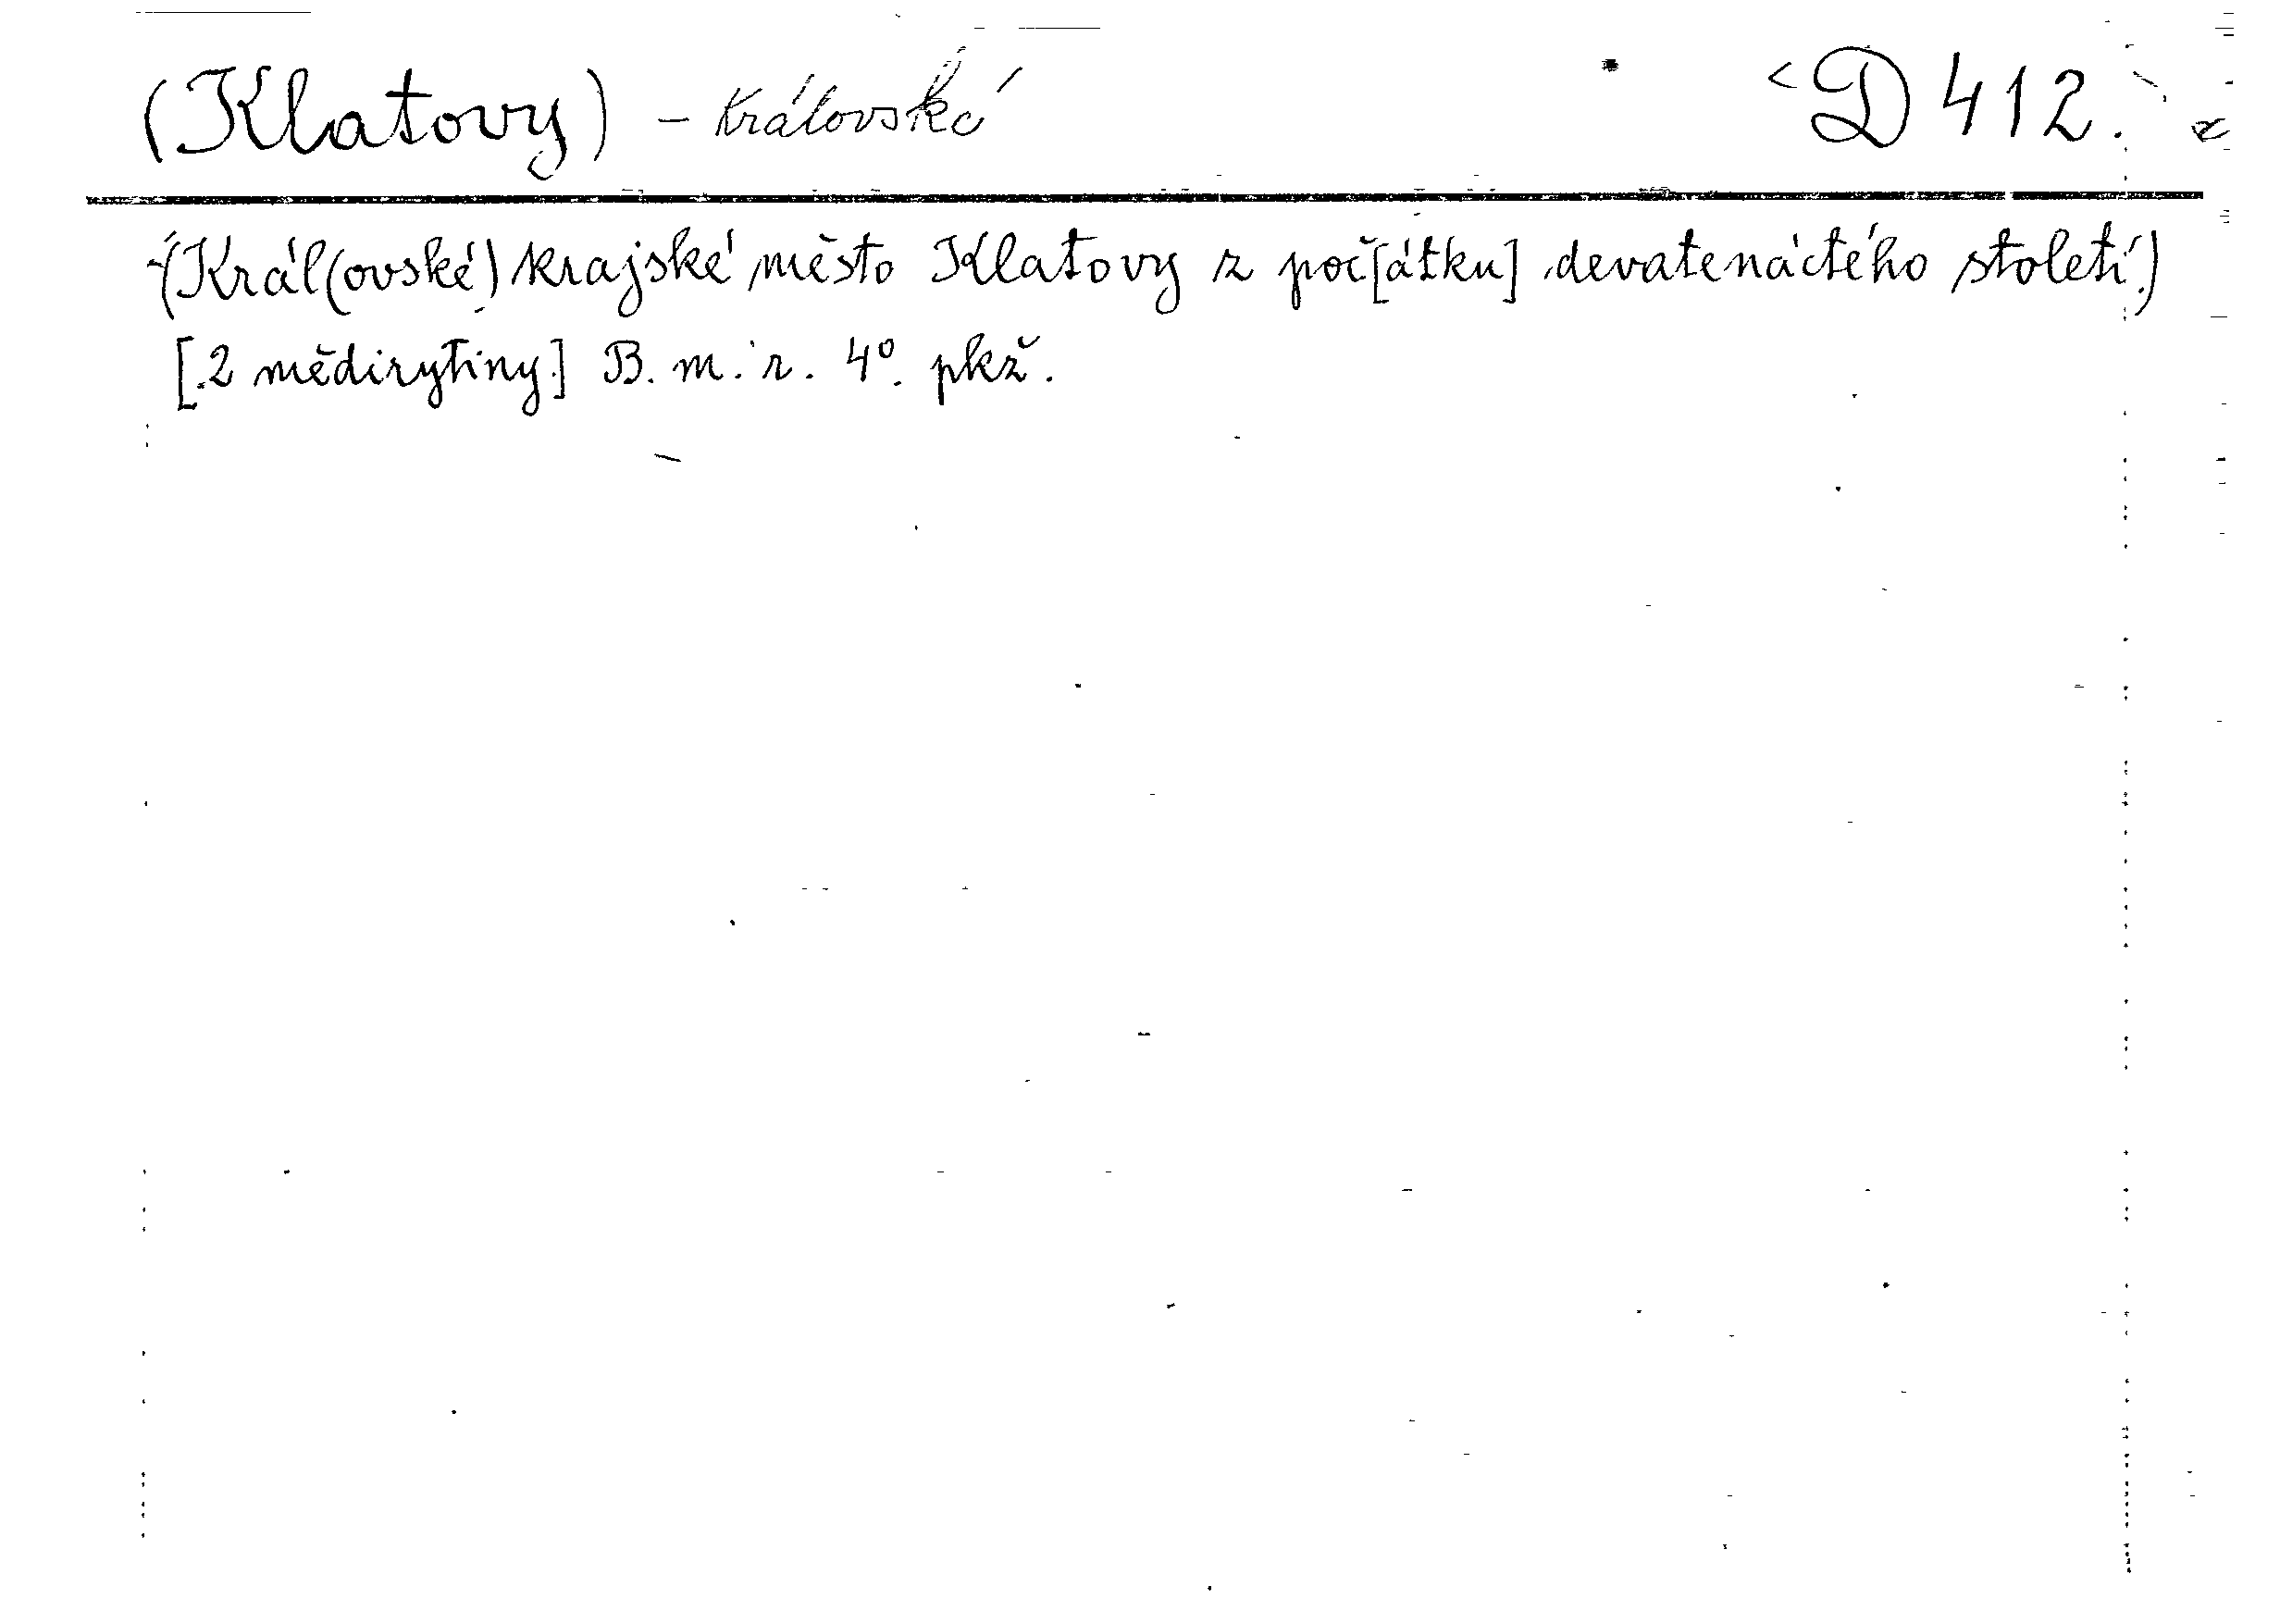 (Klatovy) - Královské D 412.
(Král(ovské) krajské město Klatovy z poč[átku] devatenáctého století.)
[2 mědirytiny.] B. m. r. 4°. pkž.